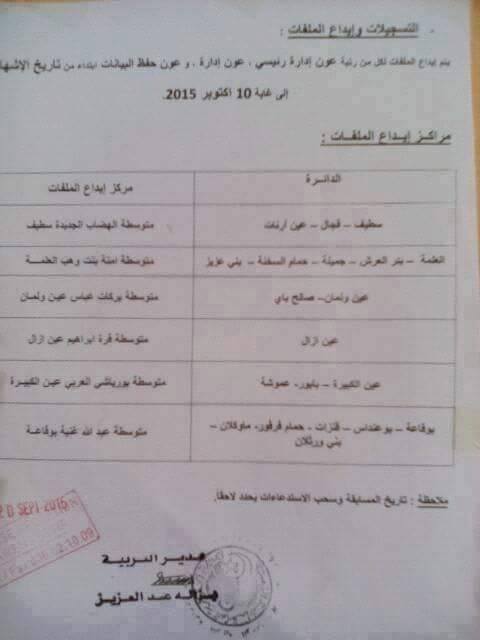 التسجيلات وإيداع الملفات :
يتم إيداع الملفات لكل من رتبة عون إدارة رئيسي ، عون إدارة ، و عون حفظ البيانات ابتداء من تاريخ الإشها
إلى غاية 10 أكتوبر 2015.
مراكز إيداع الملفات :
الدائرة
مركز إيداع الملفات
سطيف – قجال – عين أرنات
متوسطة الهضاب الجديدة سطيف
العلمة – بئر العرش – جميلة – حمام السخنة – بني عزيز
متوسطة امنة بنت وهب العلمة
عين ولمان – صالح باي
متوسطة بركات عباس عين ولمان
عين ازال
متوسطة قرة ابراهيم عين ازال
عين الكبيرة – بابور- عموشة
متوسطة بورياشي العربي عين الكبيرة
بوقاعة – بوعنداس – قنزات - حمام قرقور- ماوكلان –
بني ورثلان
متوسطة عبد الله غنية بوقاعة
ملاحظة : تاريخ المسابقة وسحب الاستدعاءات يحدد لاحقاً.
SEPT 2015
مدير التربية
عبد العزيز